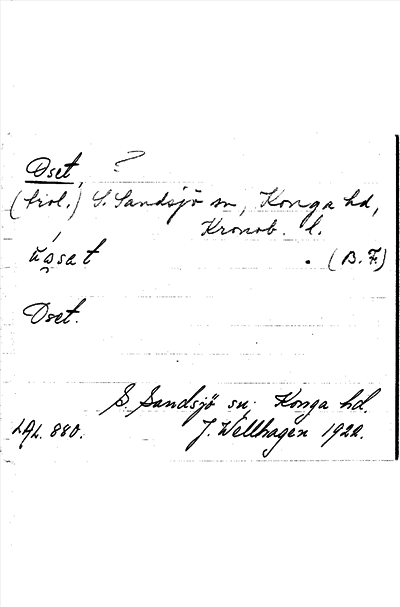 Oset, ?
(trol.) S. Sandsjö sn, Konga hd,
Kronob. l.
úåsat . (B. F.)
Oset.
S. Sandsjö sn; Konga hd.
LAL. 880. J. Wellhagen 1922.